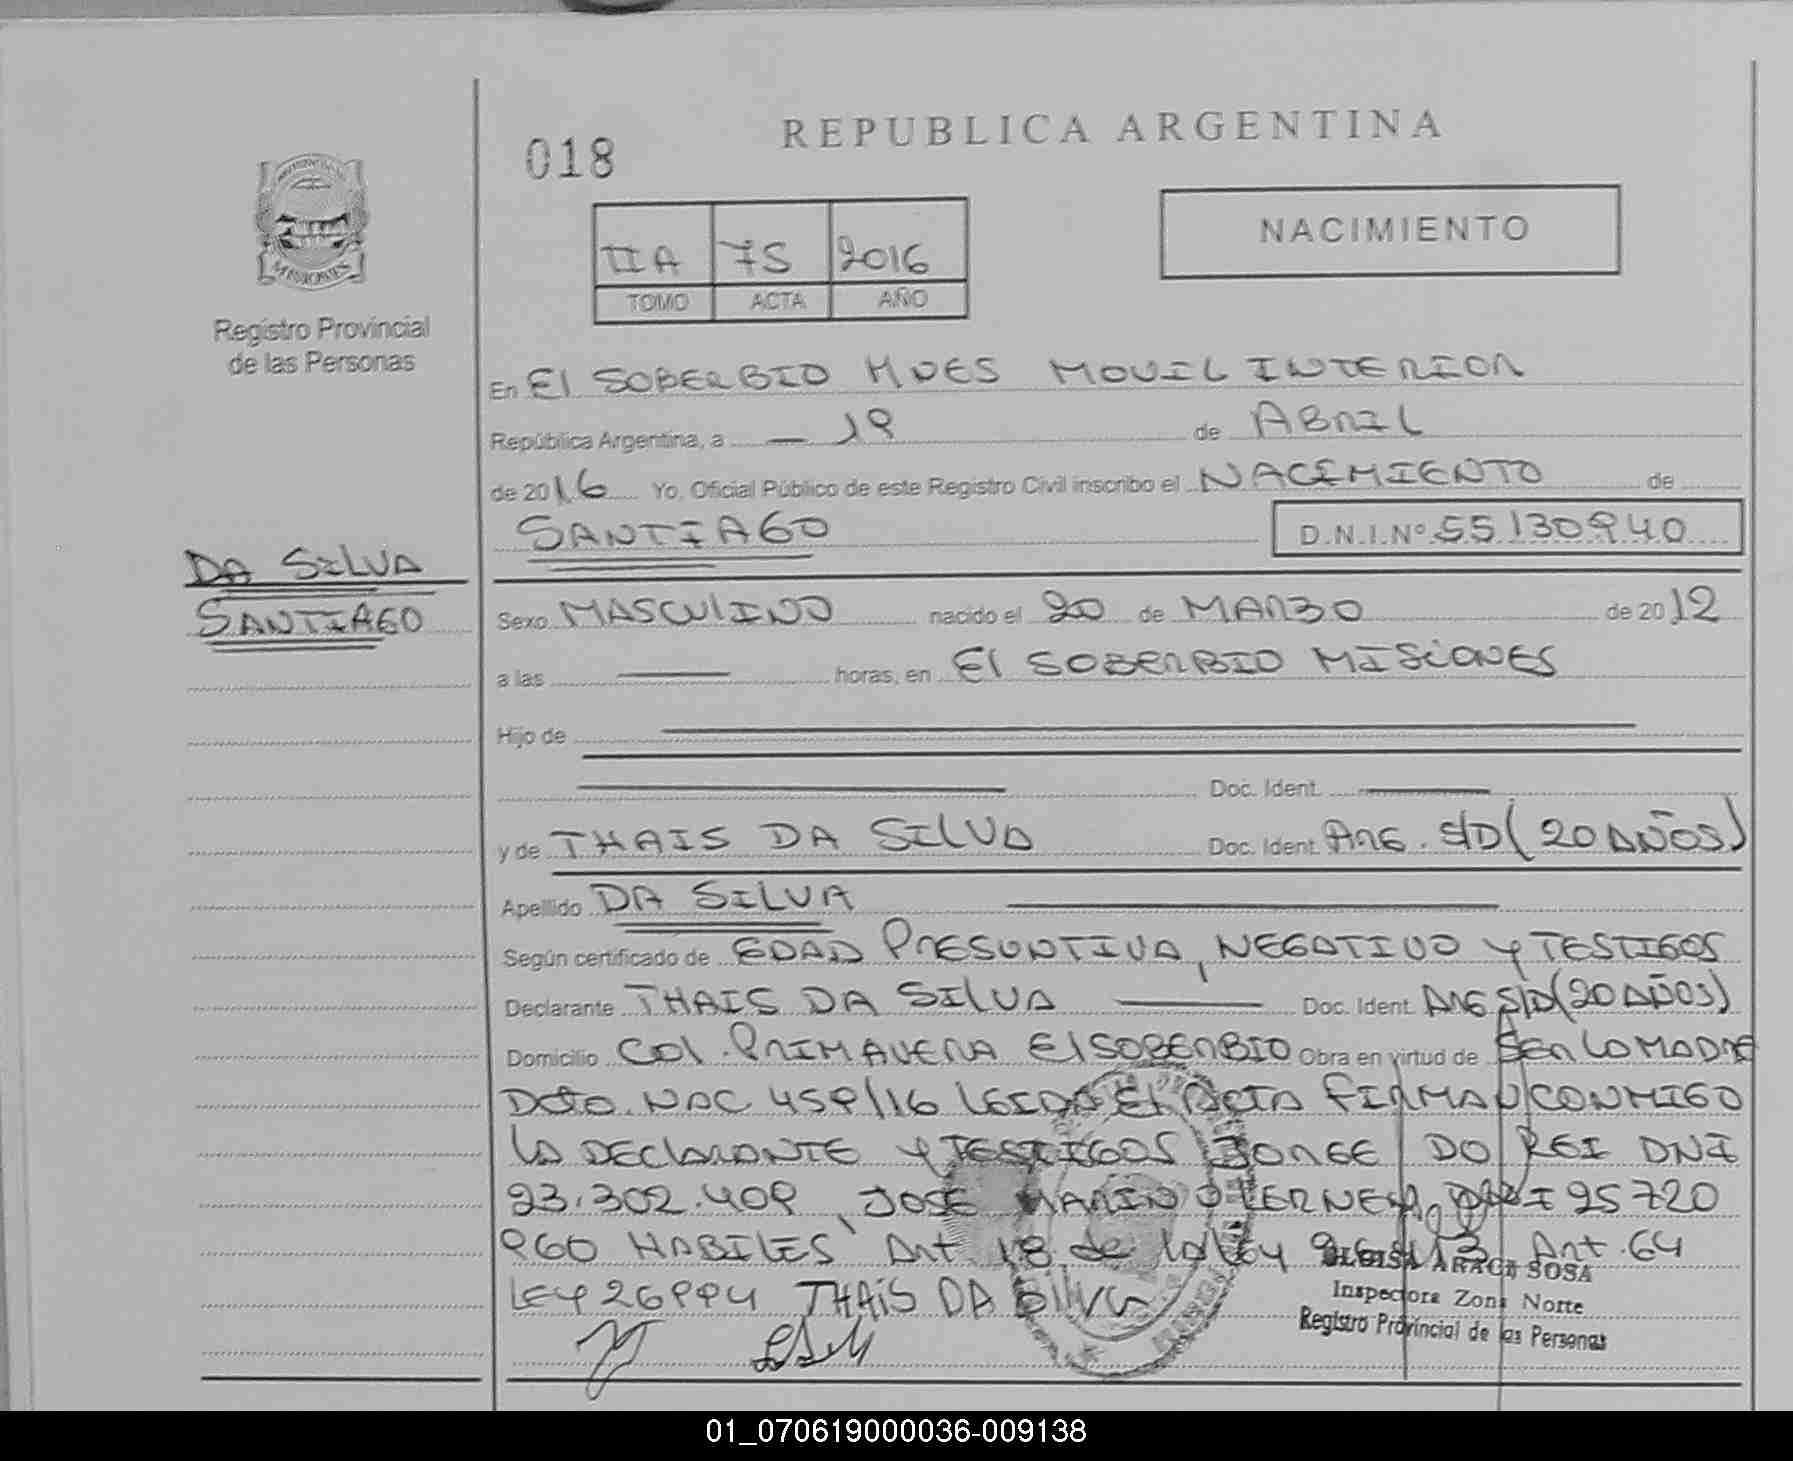 REPUBLICA ARGENTINA
018
NACIMIENTO
IIA 75 2016
TOMO ACTA AÑO
MISIONES
Registro Provincial
de las Personas
En El SOBERBIO MNES MOVIL INTERIOR
República Argentina, a 19 de ABRIL
de 2016 Yo, Oficial Público de este Registro Civil inscribo el NACIMIENTO de
SANTIAGO D.N.I.Nº 55.130.940
DA SILVA
SANTIAGO
Sexo MASCULINO nacido el 20 de MARZO de 2012
a las horas, en El SOBERBIO MISIONES
Hijo de
Doc. Ident.
y de THAIS DA SILVA Doc. Ident. ARG. S/D (20 AÑOS)
Apellido DA SILVA
Según certificado de EDAD PRESUNTIVA, NEGATIVO y TESTIGOS
Declarante THAIS DA SILVA Doc. Ident. ARG S/D (20 AÑOS)
Domicilio Col. PRIMAVERA El SOBERBIO Obra en virtud de SER LA MADRE
Dcto. NAC 459/16 LEIDA El ACTA FIRMAN CONMIGO
LA DECLARANTE y TESTIGOS JORGE DO REI DNI
23.302.409, JOSE MARIN DNI 25720
960 HABILES Art 18 de la ley 26413 Art. 64
LEY 26994 THAIS DA Silva
ARACA SOSA
Inspectora Zona Norte
Registro Provincial de las Personas
01_070619000036-009138